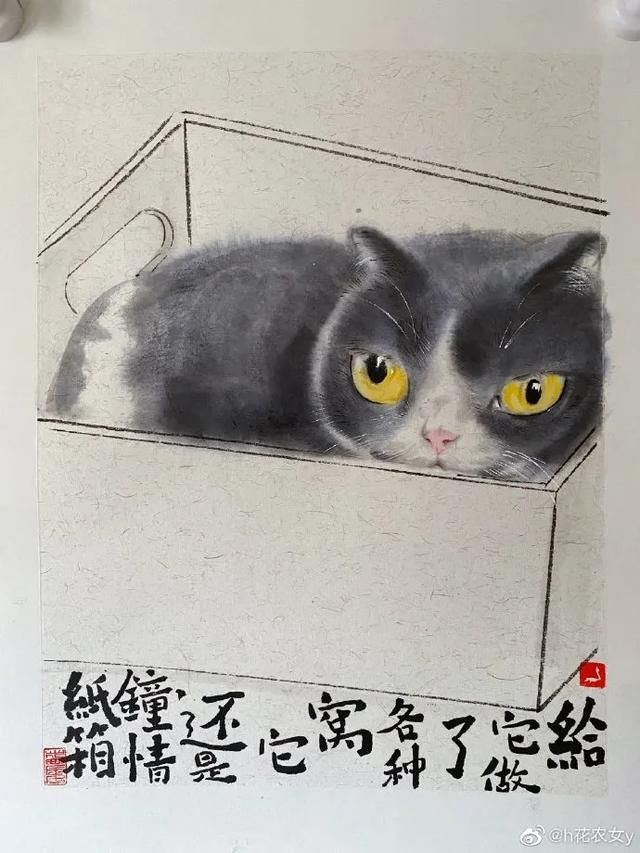 給
它做
了
各种
窩
它
还是
鐘情
紙箱
@h花农女y